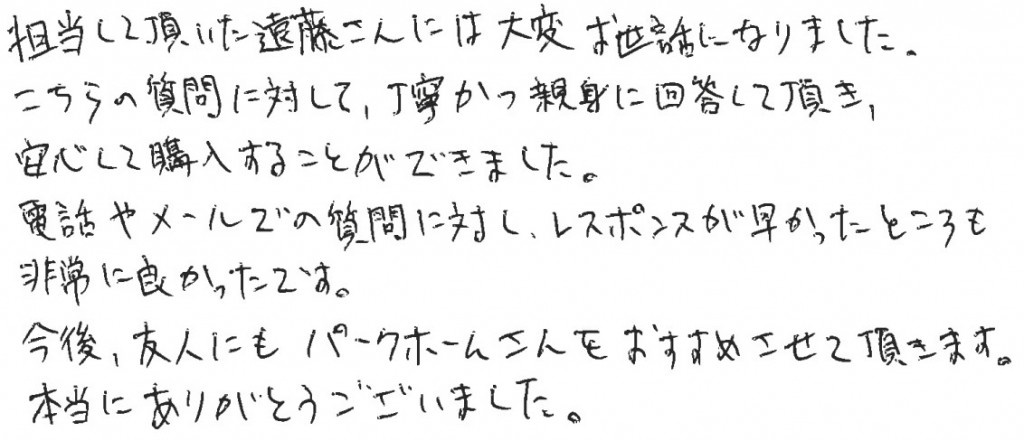 担当して頂いた遠藤さんには大変お世話になりました。
こちらの質問に対して、丁寧かつ親身に回答して頂き、
安心して購入することができました。
電話やメールでの質問に対し、レスポンスが早かったところも
非常に良かったです。
今後、友人にもパークホームさんをおすすめさせて頂きます。
本当にありがとうございました。